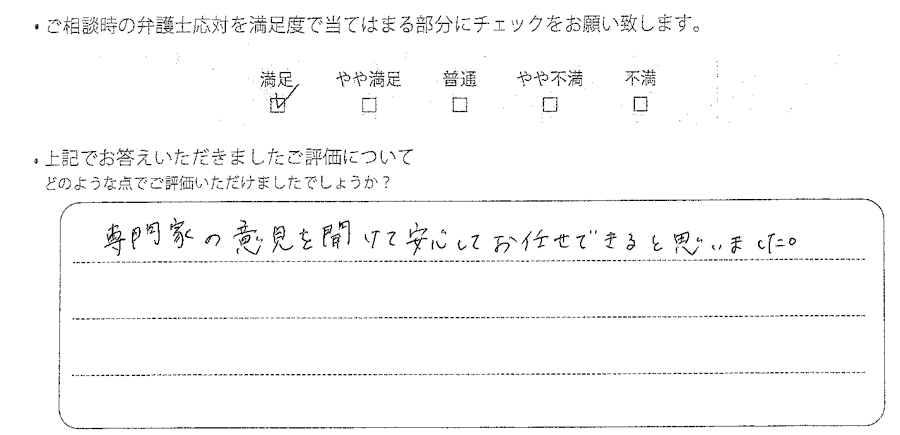 ・ご相談時の弁護士応対を満足度で当てはまる部分にチェックをお願い致します。
満足 やや満足 普通 やや不満 不満
☑ □ □ □ □
・上記でお答えいただきましたご評価について
どのような点でご評価いただけましたでしょうか？
専門家の意見を聞けて安心してお任せできると思いました。